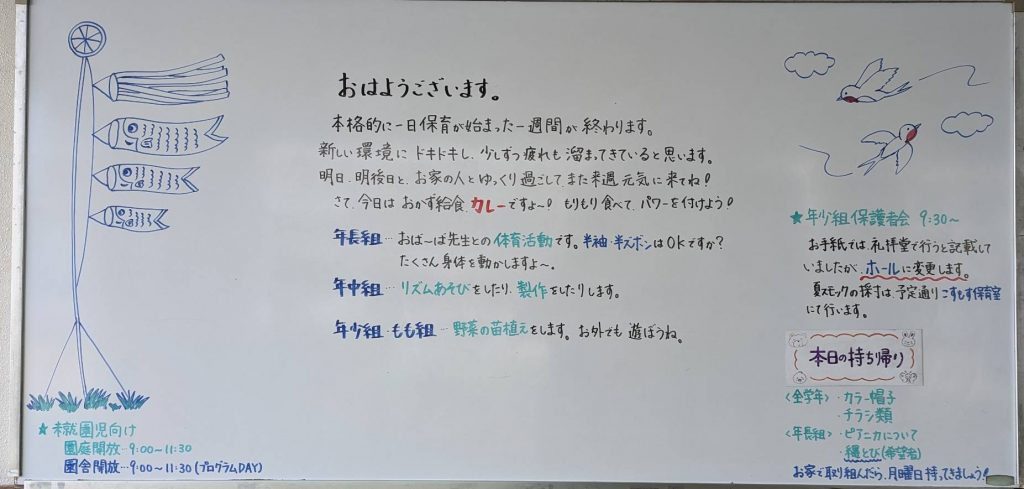 おはようございます。
本格的に一日保育が始まった一週間が終わります。
新しい環境にドキドキし、少しずつ疲れも溜まってきていると思います。
明日、明後日と、お家の人とゆっくり過ごして、また来週元気に来てね！
さて、今日はおかず給食、カレーですよ〜！もりもり食べて、パワーを付けよう！
年長組…おば〜ば先生との体育活動です。半袖・半ズボンはOKですか？
たくさん身体を動かしますよ〜。
年中組…リズムあそびをしたり、製作をしたりします。
年少組・もも組…野菜の苗植えをします。お外でも遊ぼうね。
★未就園児向け
園庭開放…9:00〜11:30
園舎開放…9:00〜11:30(プログラムDAY)
★年少組保護者会 9:30〜
お手紙では、礼拝堂で行うと記載して
いましたが、ホールに変更します。
夏スモックの採寸は、予定通りこすもす保育室
にて行います。
本日の持ち帰り
〈全学年〉・カラー帽子
・チラシ類
〈年長組〉・ピアニカについて
・縄とび(希望者)
お家で取り組んだら、月曜日持ってきましょう！